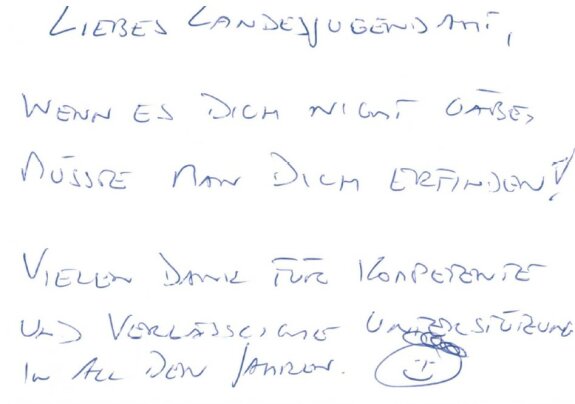 LIEBES LANDESJUGENDAMT,
WENN ES DICH NICHT GÄBE,
MÜSSTE MAN DICH ERFINDEN!
VIELEN DANK FÜR KOMPETENTE
UND VERLÄSSLICHE UNTERSTÜTZUNG
IN ALL DEN JAHREN.